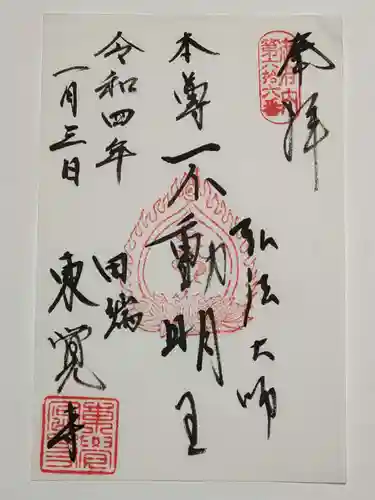 奉拝
御府内
第六拾六番
弘法大師
本尊 不動明王
令和四年
一月三日
田端
東覺寺
東覺寺